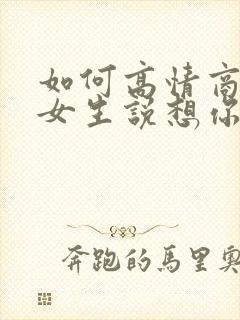 如何高情商
女生说想你
奔跑的馬里奥